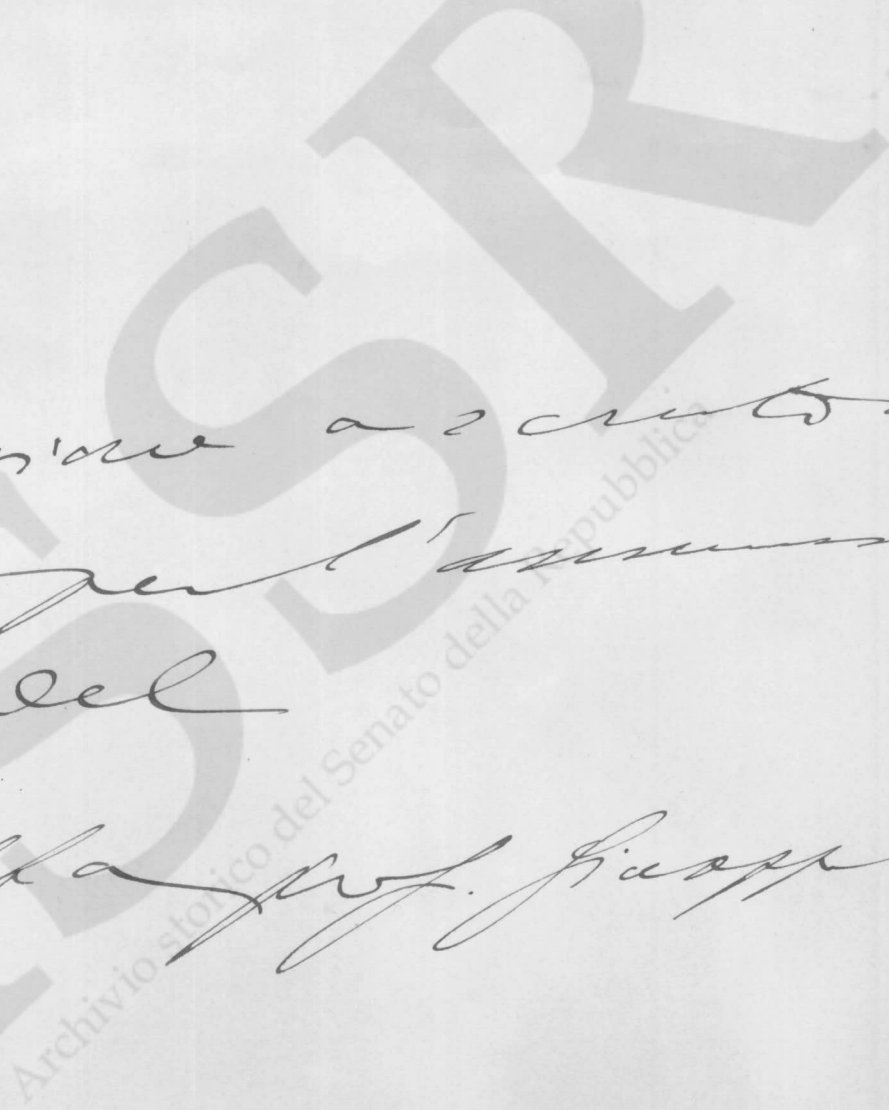 a scruto
per l'annun
del
prof. Giusepp
ASSR
Archivio storico del Senato della Repubblica